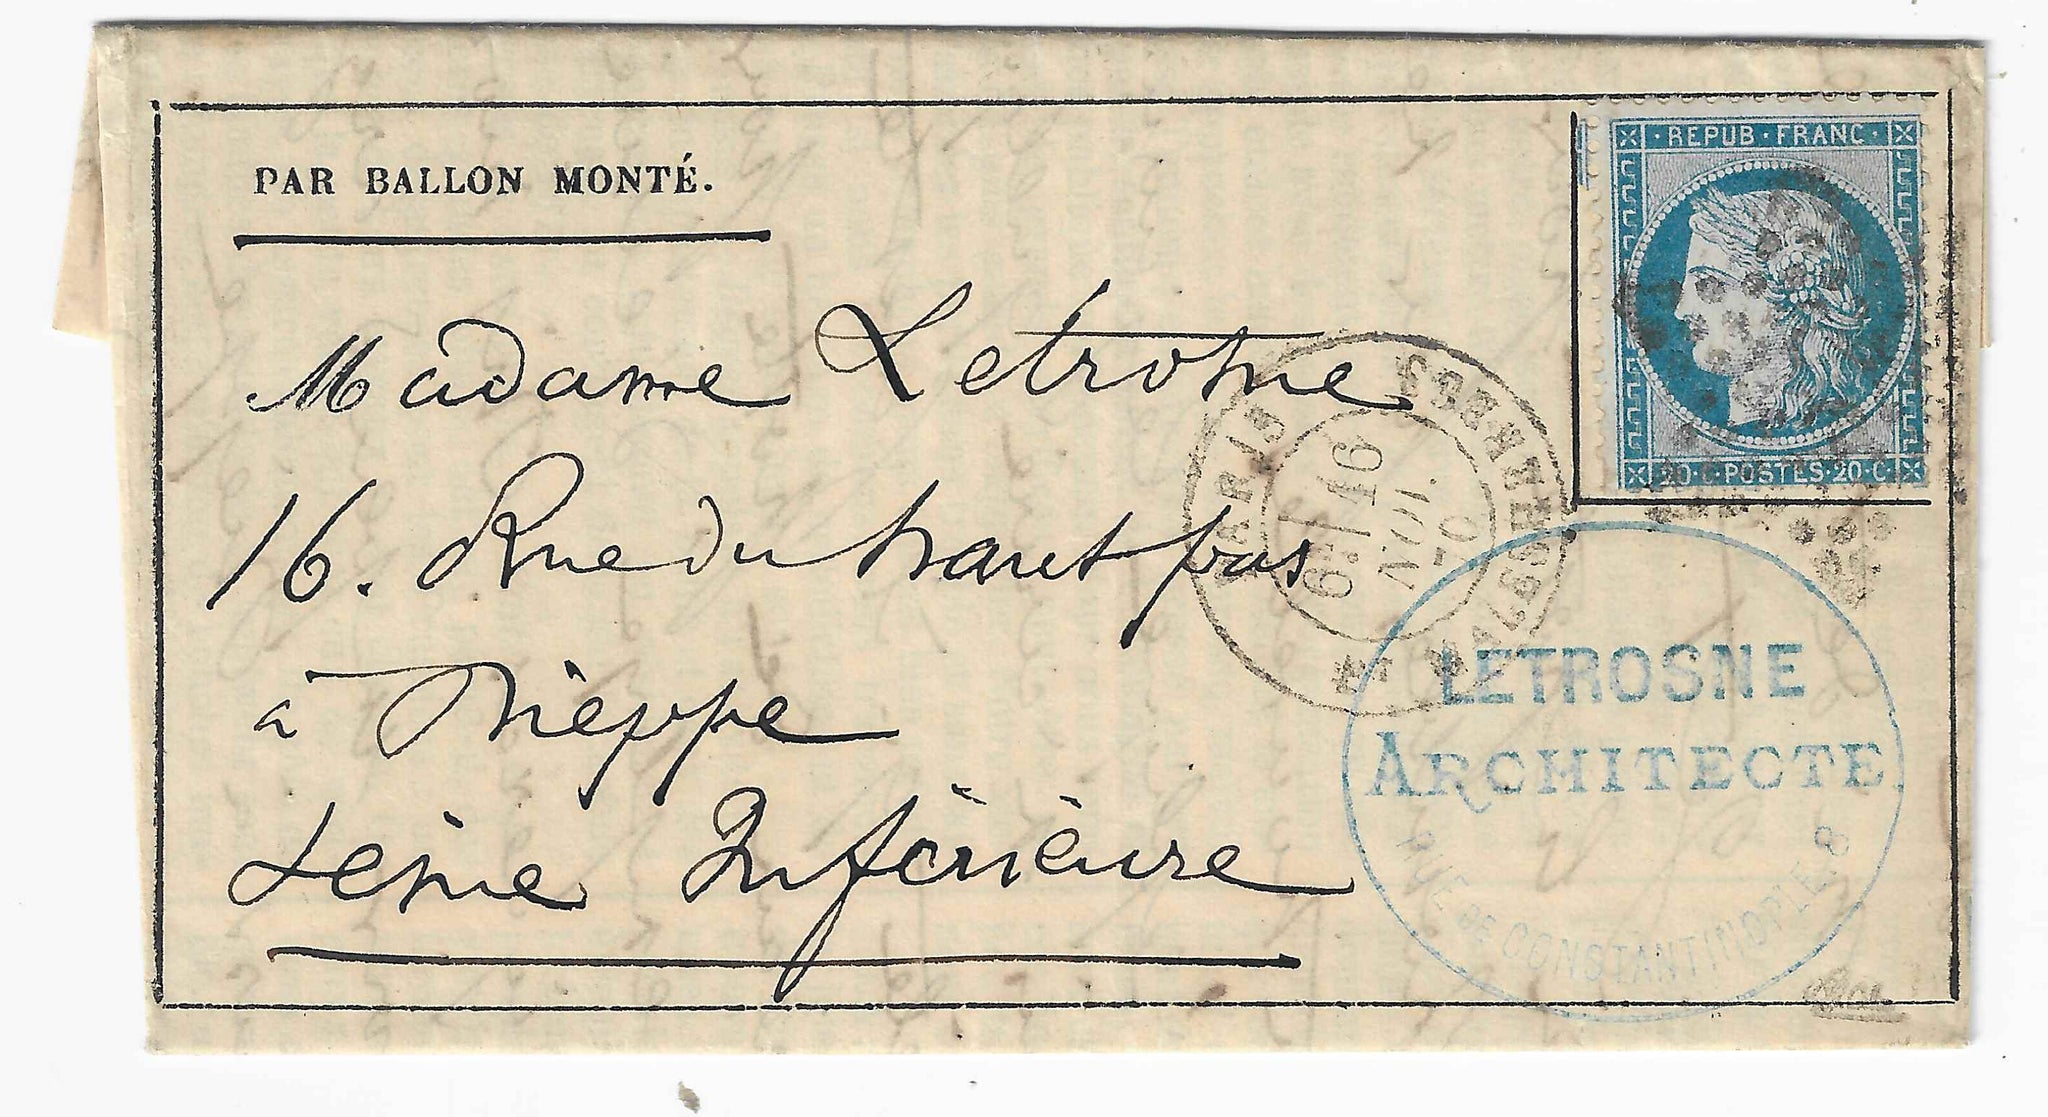 PAR BALLON MONTÉ.
REPUB · FRANC ·
20 · C · POSTES · 20 · C
Madame Letrosne
16. Rue du haut pas
à Dieppe
Seine Inférieure
PARIS
6E/ 16
NOV.
70
LETROSNE
ARCHITECTE
RUE DE CONSTANTINOPLE. 8